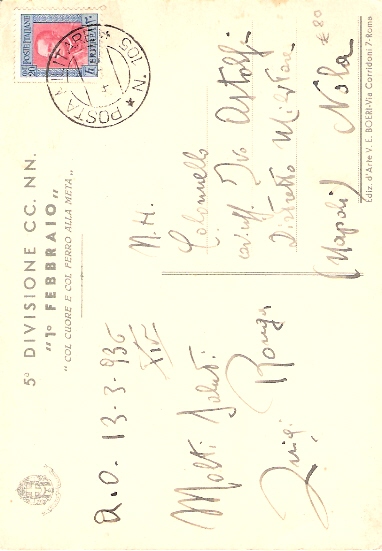 5ª DIVISIONE CC. NN.
"1° FEBBRAIO"
"COL CUORE E COL FERRO ALLA META"
POSTE ITALIANE
ERITREA
20
POSTA MILITARE
N. 105
a.o. 13-3-936
XIV
Molti Saluti
Luigi
N.H.
Colonnello
cav. uff. Ivo Astolfi
Distretto Militare
(Napoli) Nola
€20
Ediz. d'Arte V. E. BOERI-Via Corridoni 7-Roma